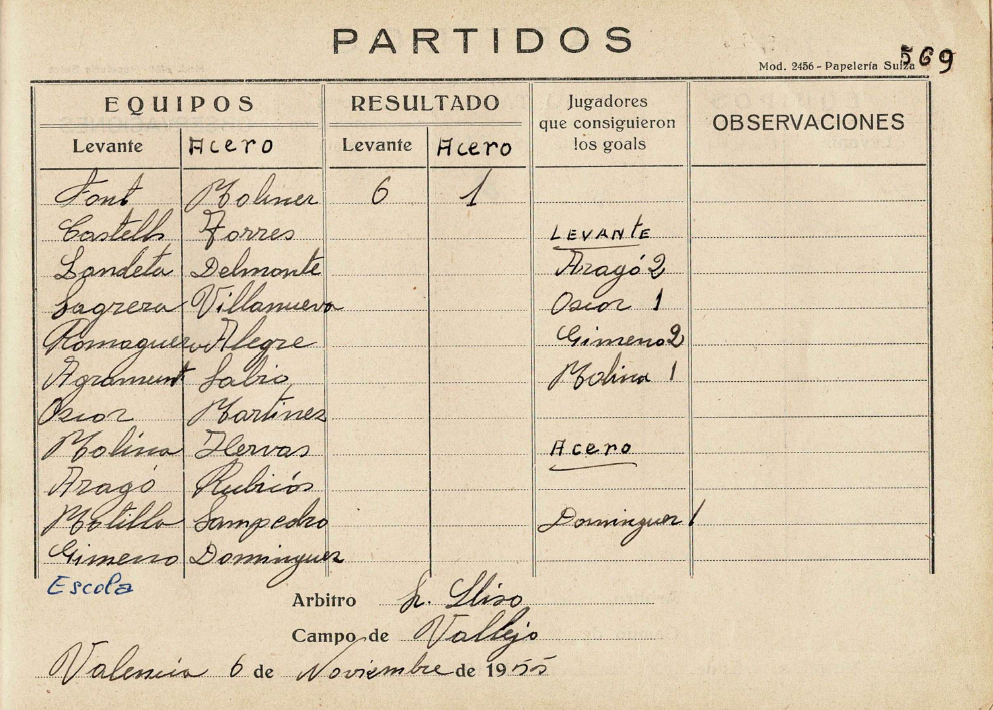 PARTIDOS
Mod. 2456 - Papelería Suiza 569
EQUIPOS RESULTADO Jugadores que consiguieron los goals OBSERVACIONES
Levante Acero Levante Acero
Font Moliner 6 1
Castells Torres LEVANTE
Landeta Delmonte Aragó 2
Sagrera Villanueva Oscar 1
Romaguera Alegre Gimeno 2
Agramunt Sabio Molina 1
Oscar Martinez
Molina Hervas Acero
Aragó Rubiós
Motilla Sampedro Dominguez 1
Gimeno Dominguez
Escola
Arbitro Sr. Lliso
Campo de Vallejo
Valencia 6 de Noviembre de 1955